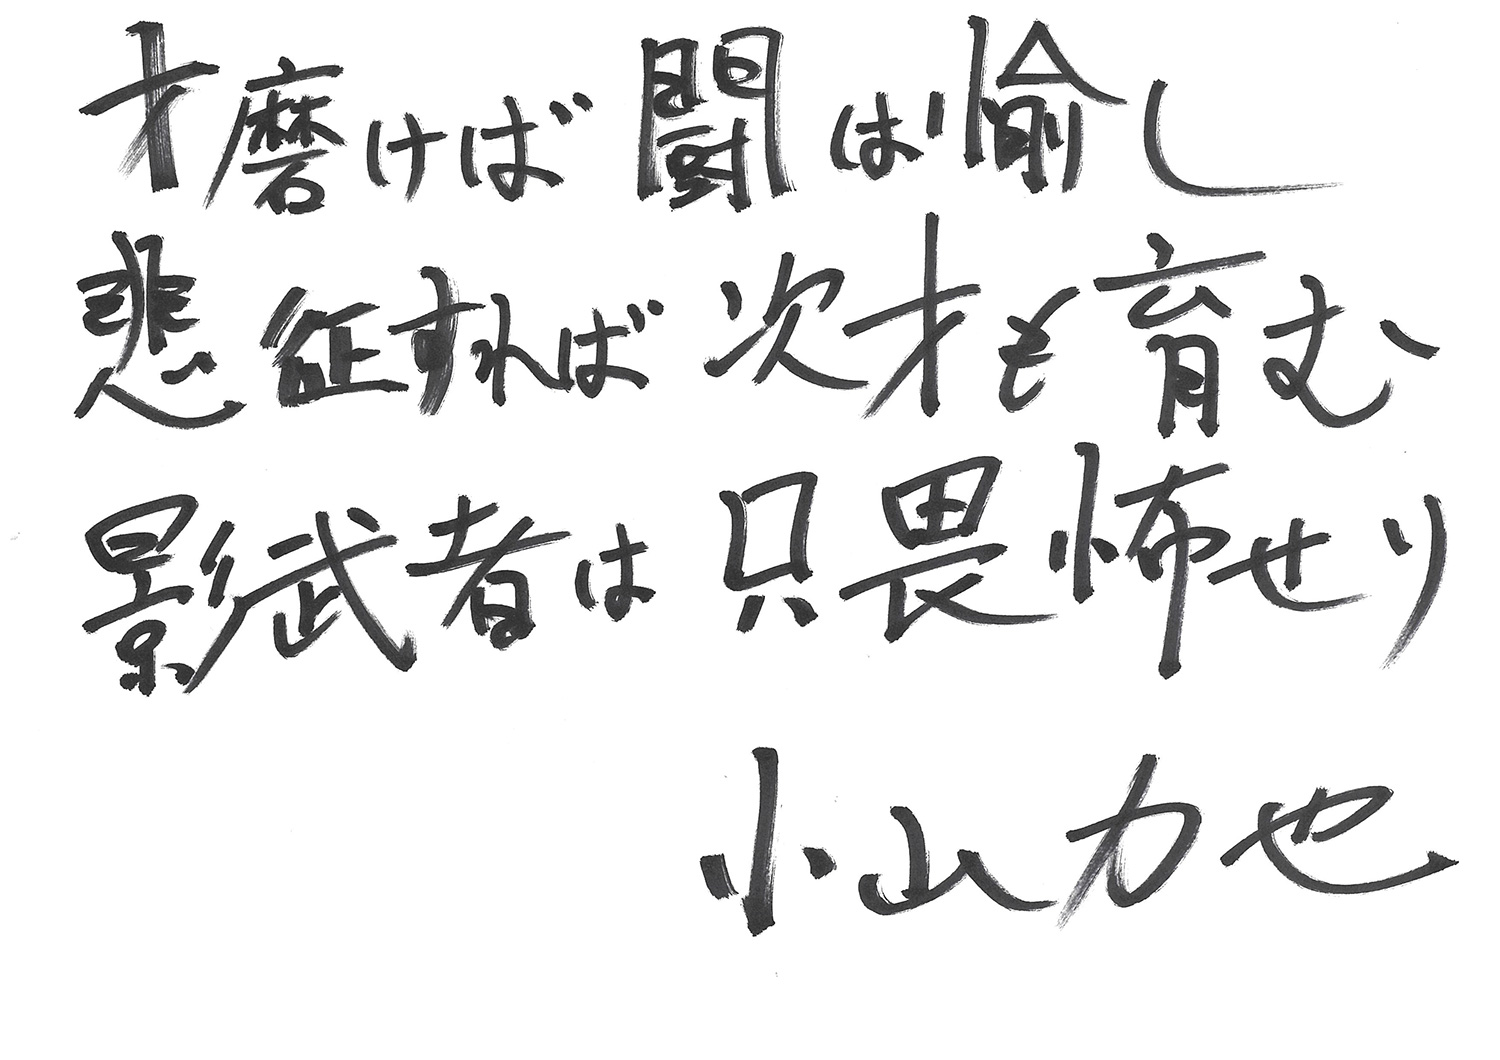 才磨けば闘は愉し
悲征すれば次才も育む
影武者は只畏怖せり
小山力也